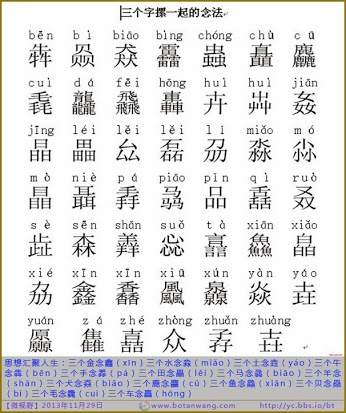 三个字摞一起的念法
bēn bì biāo bìng chóng chù cū
犇 赑 猋 靐 蟲 矗 麤
cuì dá fēi hōng huì huì jiān
毳 龘 飝 轟 卉 芔 姦
jīng léi lěi lěi lí miǎo mó
晶 畾 厽 磊 刕 淼 尛
mò niè pá piāo pǐn qì ruò
瞐 聶 掱 骉 品 叒
sè sēn shān suǒ tà xiān xiǎo
歮 森 羴 惢 譶 鱻 皛
xié xīn xīn xiū xún yàn yáo
劦 鑫 馫 飍 灥 焱 垚
yuán zá zhé zhòng zhuǎn zhuàng
厵 雥 嚞 众 孨 壵
思想汇聚人生：三个金念鑫（xīn）三个水念淼（miǎo）三个土念垚（yáo）三个牛
念犇（bēn）三个手念掱（pá）三个田念畾（lěi）三个马念骉（biāo）三个羊念
羴（shān）三个犬念猋（biāo）三个鹿念麤（cū）三个鱼念鱻（xiān）三个贝念赑
（bì）三个毛念毳（cuì）三个车念轟（hōng）
【微视野】2013年11月29日 www.botanwang.com http://yc.bbs.io/bt